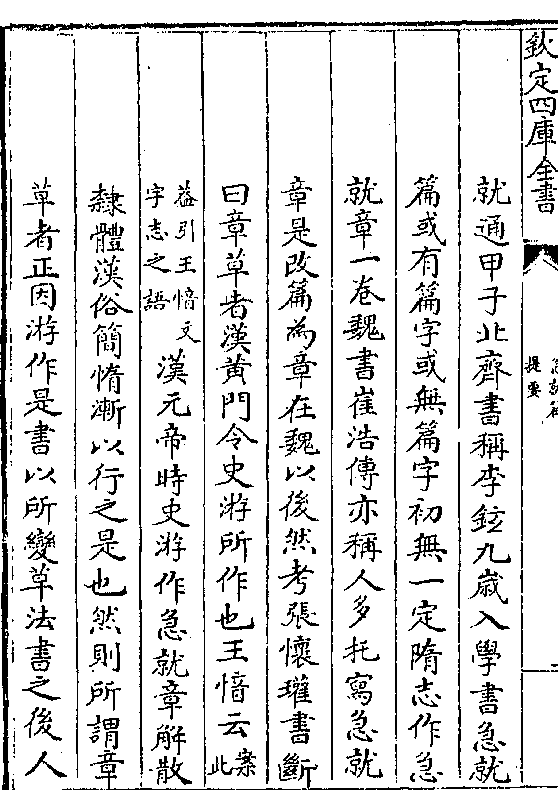 欽定四庫全書
急就篇
提要
就通甲子北齊書稱李鉉九歲入學書急就
篇或有篇字或無篇字初無一定隋志作急
就章一卷魏書崔浩傳亦稱人多托寫急就
章是改篇為章在魏以後然考張懷瓘書斷
曰章草者漢黃門令史游所作也王愔云案此
蓋引王愔文字志之語漢元帝時史游作急就章解散
隸體漢俗簡惰漸以行之是也然則所謂章
草者正因游作是書以所變草法書之後人